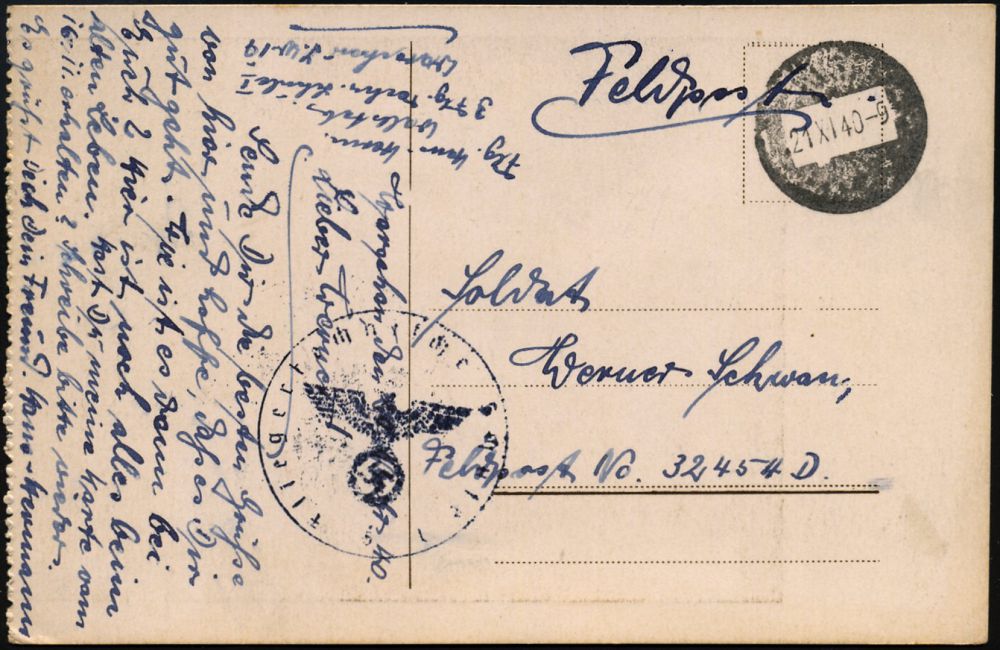 Feldpost.
21 XI 40-9
Soldat
Werner Schwan,
Feldpost No. 32454 D.
Flg. Hans Herm.
3 Flg. techn. Schule I
Lieber Werner!
Sende Dir die besten Grüße
von hier und hoffe, daß es Dir
gut geht. Wie ist es denn bei
Euch? Hier ist noch alles beim
alten Leben. Hast Du meine Karte vom
16.11. erhalten? Schreibe bitte wieder.
Es grüßt Dich Dein Freund. Hans-Hermann